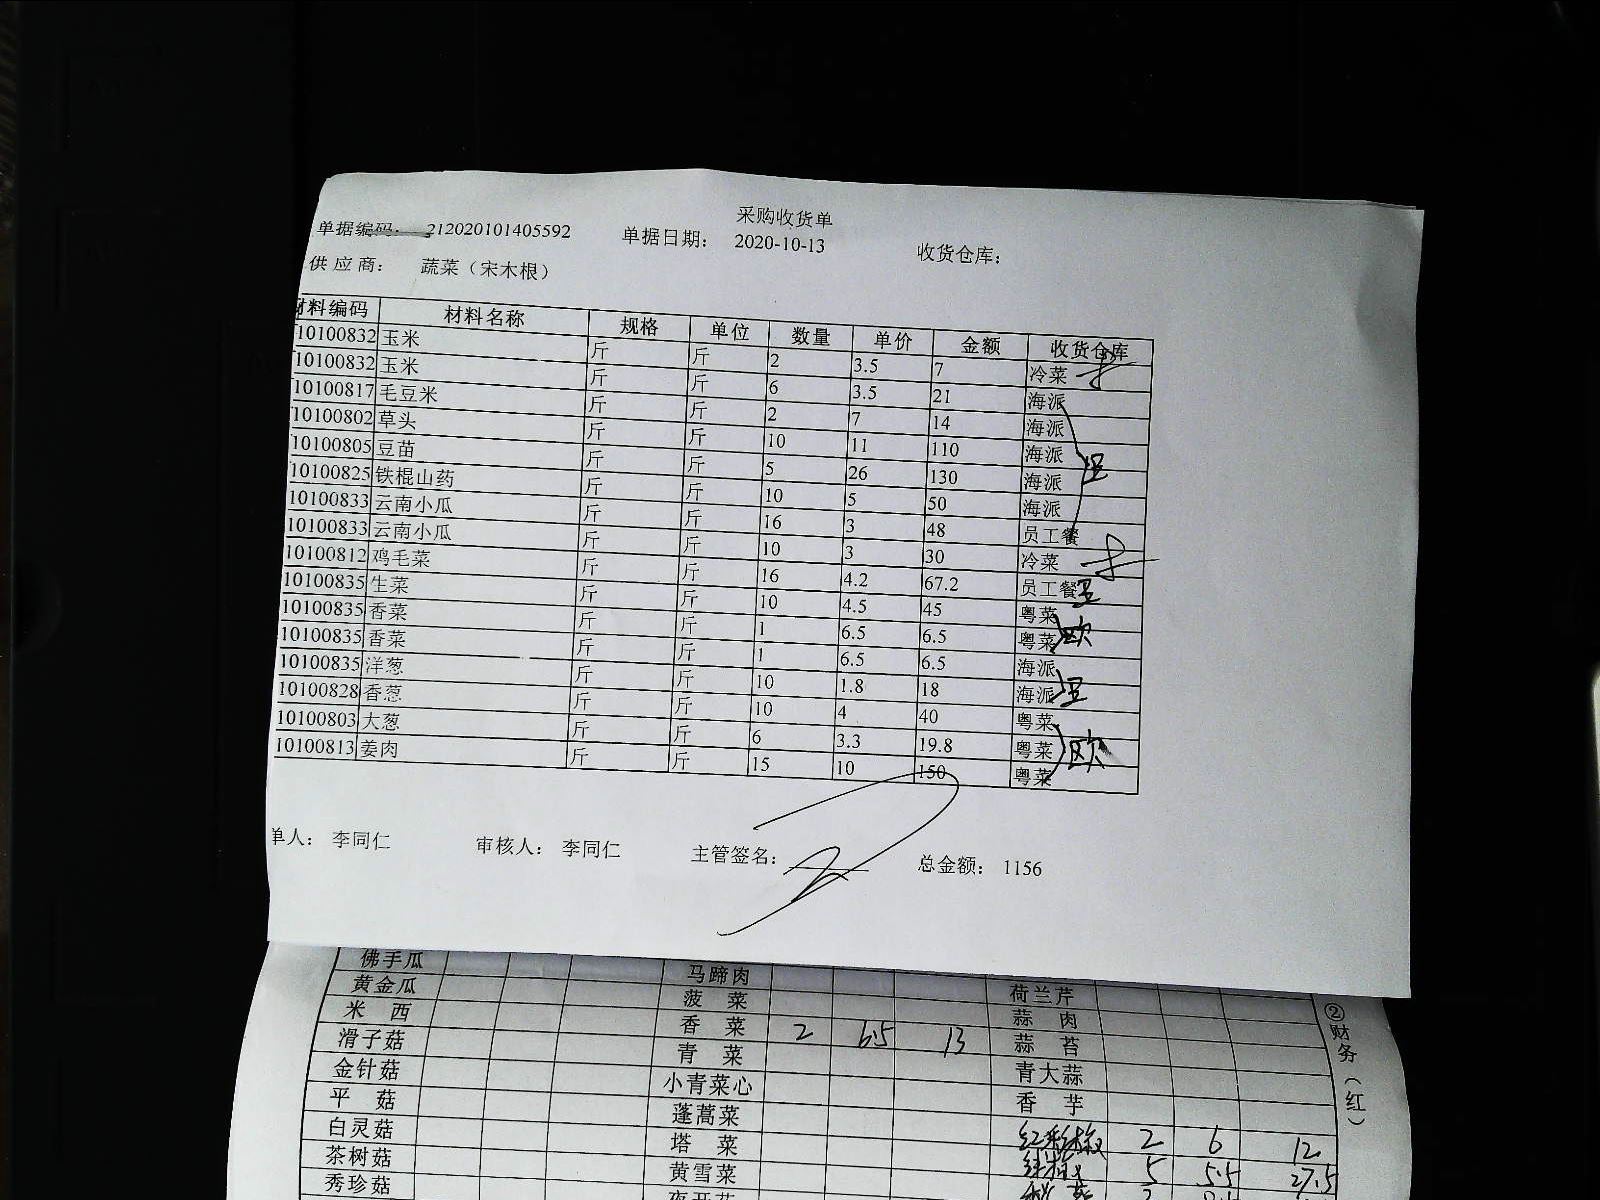 采购收货单
单据编码： 212020101405592 单据日期： 2020-10-13 收货仓库：
供应商： 蔬菜（宋木根）
材料编码 材料名称 规格 单位 数量 单价 金额 收货仓库
10100832 玉米 斤 斤 2 3.5 7 冷菜
10100832 玉米 斤 斤 6 3.5 21 海派
10100817 毛豆米 斤 斤 2 7 14 海派
10100802 草头 斤 斤 10 11 110 海派
10100805 豆苗 斤 斤 5 26 130 海派
10100825 铁棍山药 斤 斤 10 5 50 海派
10100833 云南小瓜 斤 斤 16 3 48 员工餐
10100833 云南小瓜 斤 斤 10 3 30 冷菜
10100812 鸡毛菜 斤 斤 16 4.2 67.2 员工餐
10100835 生菜 斤 斤 10 4.5 45 粤菜
10100835 香菜 斤 斤 1 6.5 6.5 粤菜 欧
10100835 香菜 斤 斤 1 6.5 6.5 海派
10100835 洋葱 斤 斤 10 1.8 18 海派
10100828 香葱 斤 斤 10 4 40 粤菜
10100803 大葱 斤 斤 6 3.3 19.8 粤菜 欧
10100813 姜肉 斤 斤 15 10 150 粤菜
单人： 李同仁 审核人： 李同仁 主管签名： 总金额： 1156
佛手瓜 马蹄肉
黄金瓜 菠菜 荷兰芹
米西 香菜 2 6.5 13 蒜肉
滑子菇 青菜 蒜苔
金针菇 小青菜心 青大蒜
平菇 蓬蒿菜 香芋
白灵菇 塔菜 红彩椒 2 6 12
茶树菇 黄雪菜 5 5.5 27.5
秀珍菇
②财务（红）